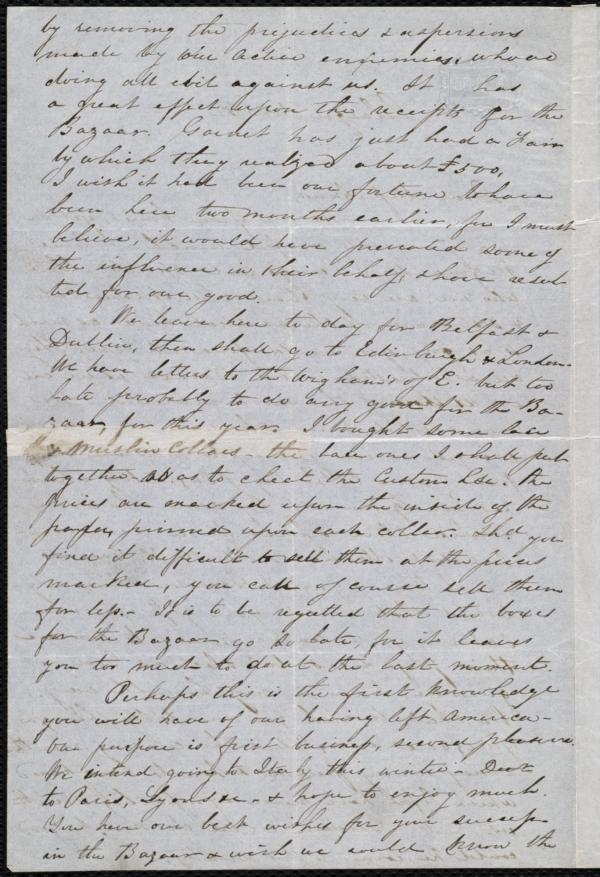 by removing the prejudices & aspersions
made by our active enemies, who are
doing all evil against us. It has
a great effect upon the receipts for the
Bazaar. Garnet has just had a Fair
by which they realized about $500,
I wish it had been our fortune to have
been here two months earlier, for I must
believe, it would have prevented some of
the influence in their behalf, & have resul
ted for our good.
We leave here to day for Belfast &
Dublin, then shall go to Edinburgh & London.
We have letters to the Wigham's of E. but too
late probably to do any good for the Ba-
zaar, for this year. I bought some lace
& Muslin Collars - the lace ones I shall put
together so as to cheat the Custom Hse. The
prices are marked upon the inside of the
paper, pinned upon each collar. Shd you
find it difficult to sell them at the prices
marked, you can of course sell them
for less. - It is to be regretted that the boxes
for the Bazaar go so late, for it leaves
you too much to do at the last moment.
Perhaps this is the first knowledge
you will have of our having left America -
our purpose is first business, second pleasure.
We intend going to Italy this winter -
to Paris, Lyons &c - & hope to enjoy much.
You have our best wishes for your success
in the Bazaar & wish we could know the